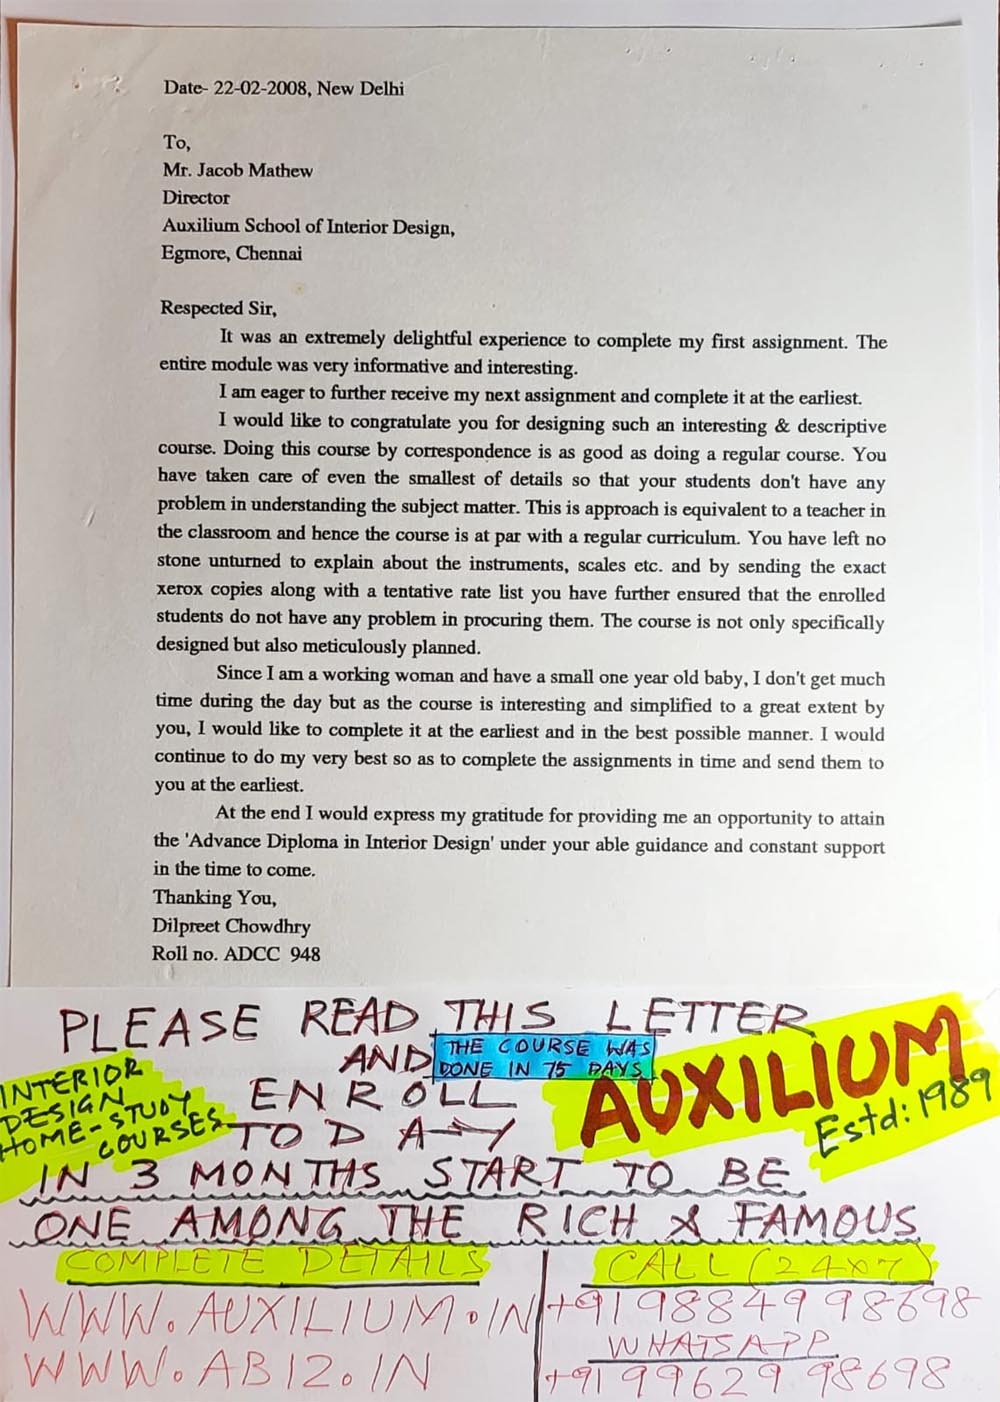 Date- 22-02-2008, New Delhi
To,
Mr. Jacob Mathew
Director
Auxilium School of Interior Design,
Egmore, Chennai
Respected Sir,
It was an extremely delightful experience to complete my first assignment. The
entire module was very informative and interesting.
I am eager to further receive my next assignment and complete it at the earliest.
I would like to congratulate you for designing such an interesting & descriptive
course. Doing this course by correspondence is as good as doing a regular course. You
have taken care of even the smallest of details so that your students don't have any
problem in understanding the subject matter. This is approach is equivalent to a teacher in
the classroom and hence the course is at par with a regular curriculum. You have left no
stone unturned to explain about the instruments, scales etc. and by sending the exact
xerox copies along with a tentative rate list you have further ensured that the enrolled
students do not have any problem in procuring them. The course is not only specifically
designed but also meticulously planned.
Since I am a working woman and have a small one year old baby, I don't get much
time during the day but as the course is interesting and simplified to a great extent by
you, I would like to complete it at the earliest and in the best possible manner. I would
continue to do my very best so as to complete the assignments in time and send them to
you at the earliest.
At the end I would express my gratitude for providing me an opportunity to attain
the 'Advance Diploma in Interior Design' under your able guidance and constant support
in the time to come.
Thanking You,
Dilpreet Chowdhry
Roll no. ADCC 948
PLEASE READ THIS LETTER
AND
THE COURSE WAS
DONE IN 75 DAYS
ENROLL
TODAY
INTERIOR
DESIGN
HOME-STUDY
COURSES
AUXILIUM
Estd: 1989
IN 3 MONTHS START TO BE
ONE AMONG THE RICH & FAMOUS
COMPLETE DETAILS
WWW.AUXILIUM.IN
WWW.AB12.IN
CALL (24x7)
+91 98849 98698
WHATSAPP
+91 99629 98698